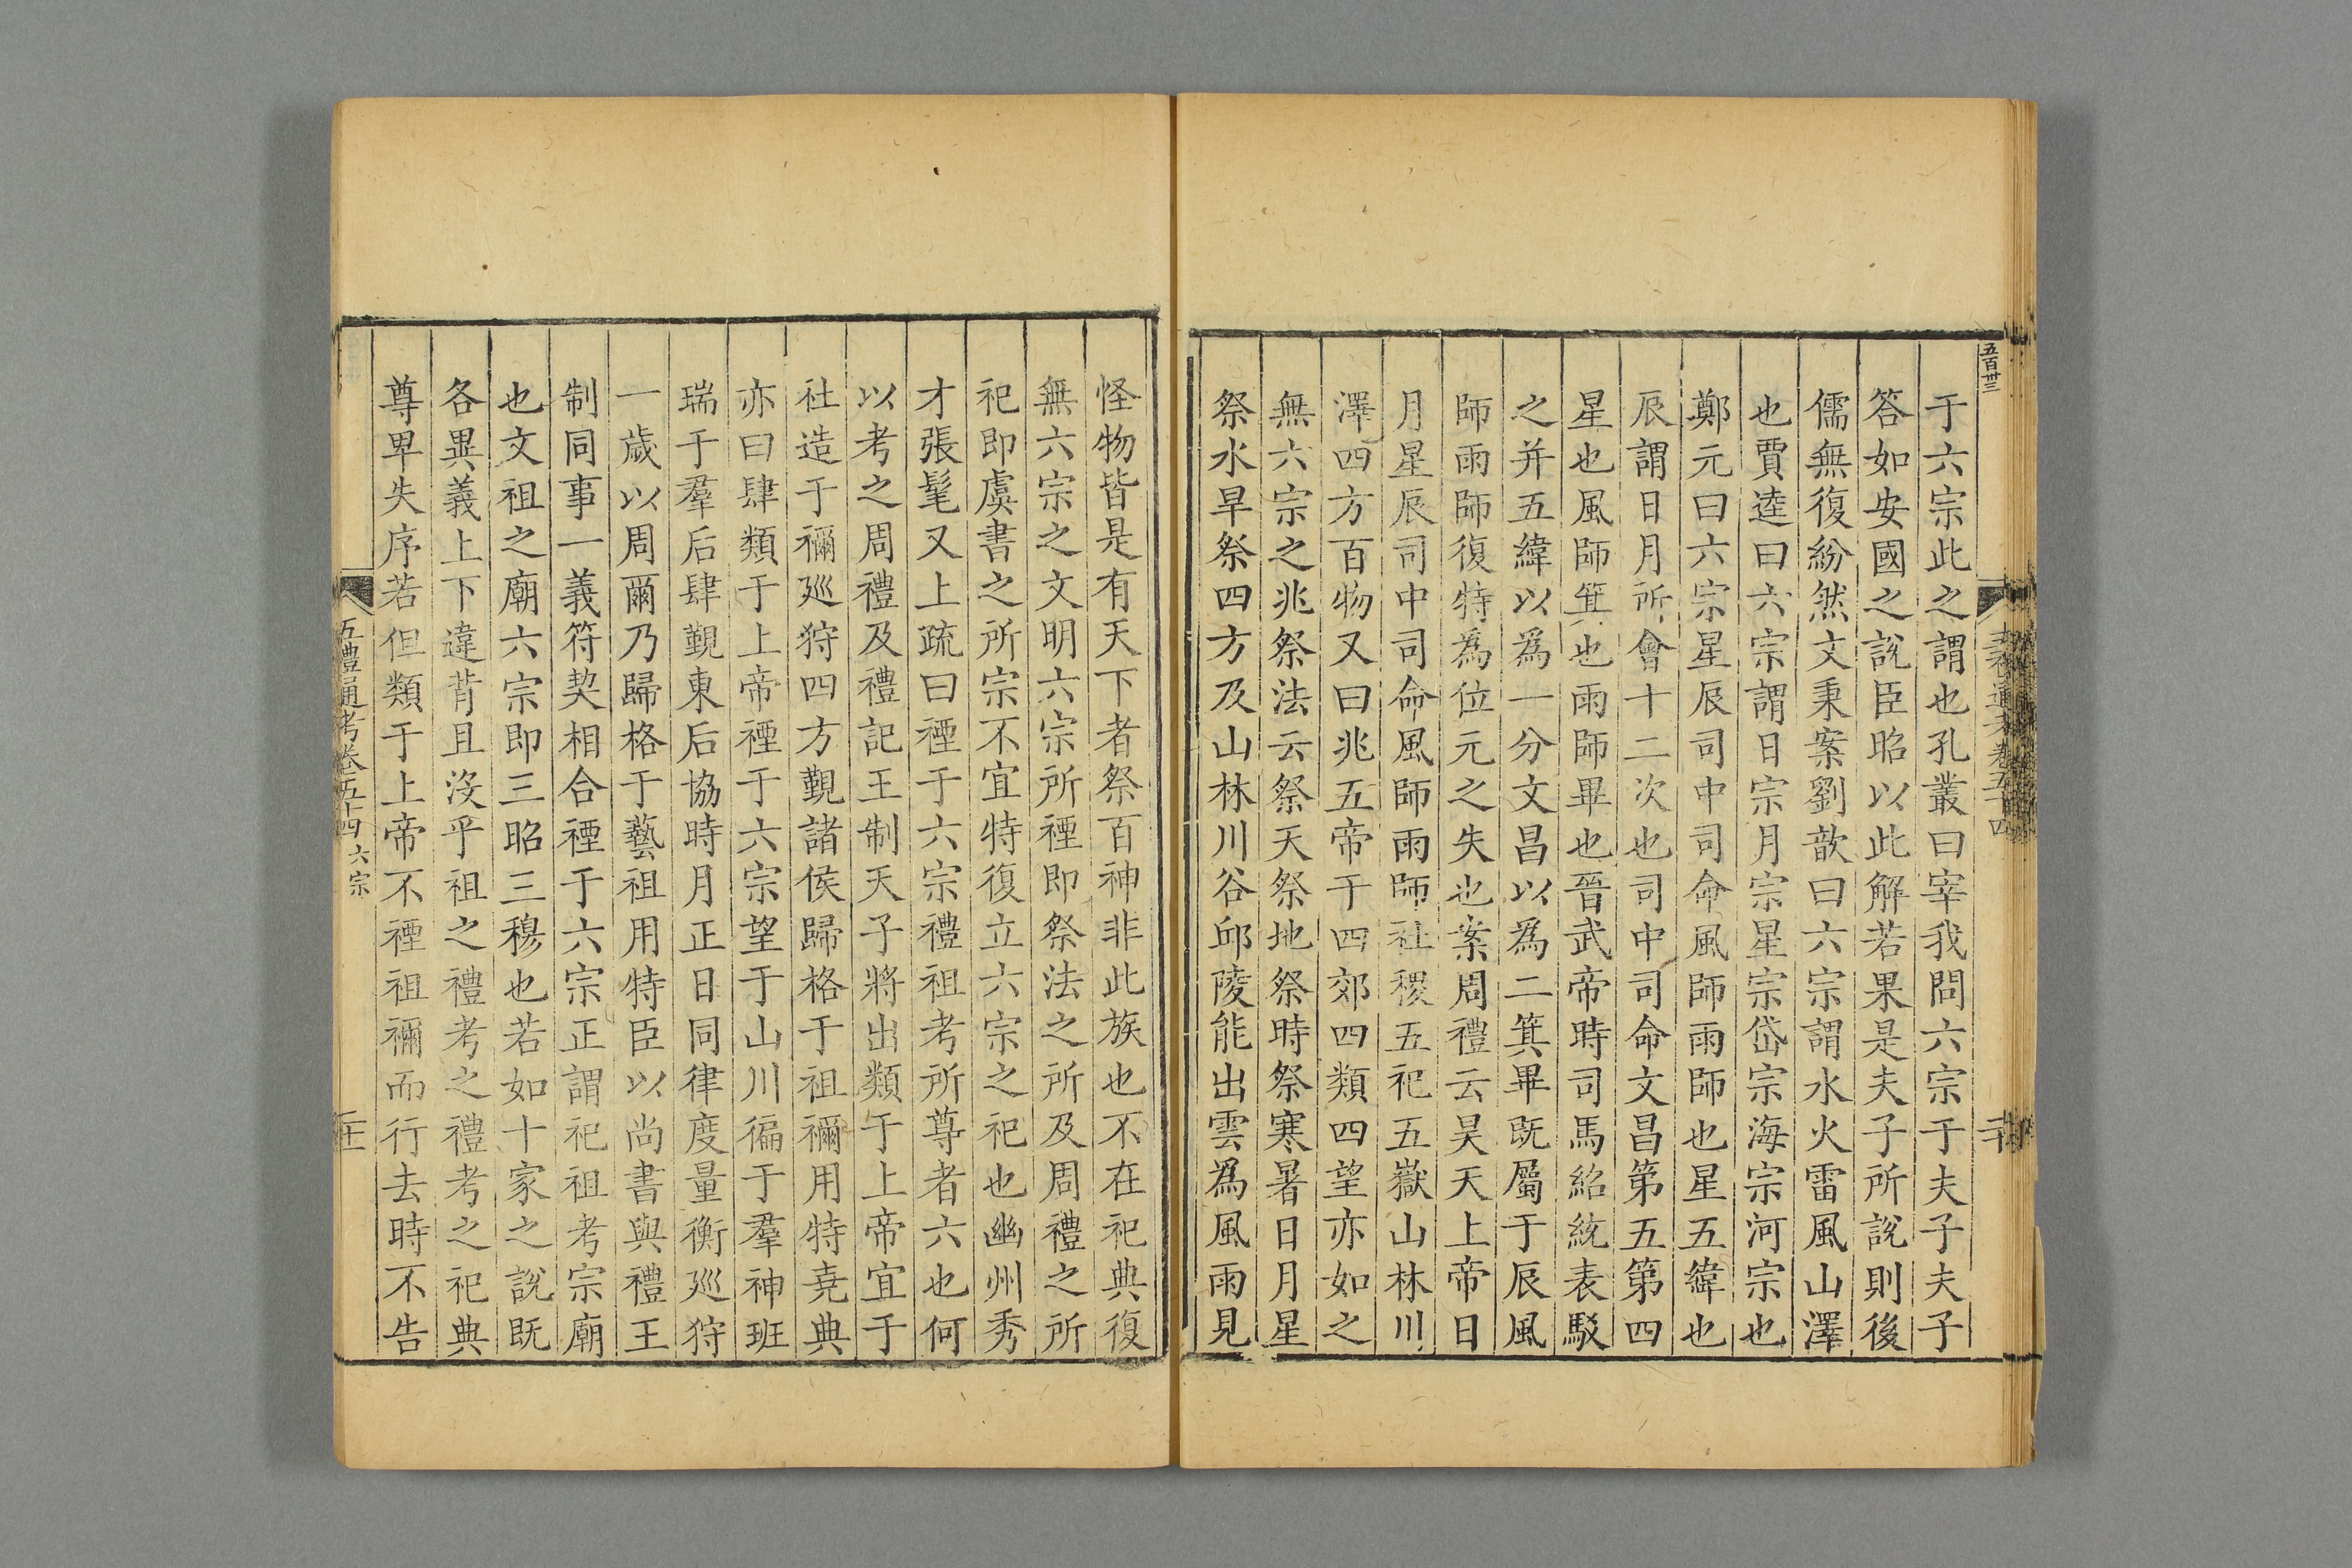 五百卅三
于六宗此之謂也孔叢曰宰我問六宗于夫子夫子
答如安國之說臣昭以此解若果是夫子所說則後
儒無復紛然文秉案劉歆曰六宗謂水火雷風山澤
也賈逵曰六宗謂日宗月宗星宗岱宗海宗河宗也
鄭元曰六宗星辰司中司命風師雨師也星五緯也
辰謂日月所會十二次也司中司命文昌第五第四
星也風師箕也雨師畢也晉武帝時司馬紹統表駁
之并五緯以為一分文昌以為二箕畢既屬于辰風
師雨師復特為位元之失也案周禮云昊天上帝日
月星辰司中司命風師雨師社稷五祀五嶽山林川
澤四方百物又曰兆五帝于四郊四類四望亦如之
無六宗之兆祭法云祭天祭地祭時祭寒暑日月星
祭水旱祭四方及山林川谷邱陵能出雲為風雨見
怪物皆是有天下者祭百神非此族也不在祀典復
無六宗之文明六宗所禋即祭法之所及周禮之所
祀即虞書之所宗不宜特復立六宗之祀也幽州秀
才張髦又上疏曰禋于六宗禮祖考所尊者六也何
以考之周禮及禮記王制天子將出類于上帝宜于
社造于禰巡狩四方觀諸侯歸格于祖禰用特堯典
亦曰肆類于上帝禋于六宗望于山川徧于羣神班
瑞于羣后肆覲東后協時月正日同律度量衡巡狩
一歲以周爾乃歸格于藝祖用特臣以尚書與禮王
制同事一義符契相合禋于六宗正謂祀祖考宗廟
也文祖之廟六宗即三昭三穆也若如十家之說既
各異義上下違背且沒乎祖之禮考之禮考之祀典
尊卑失序若但類于上帝不禋祖禰而行去時不告
五禮通考卷五十四 六宗